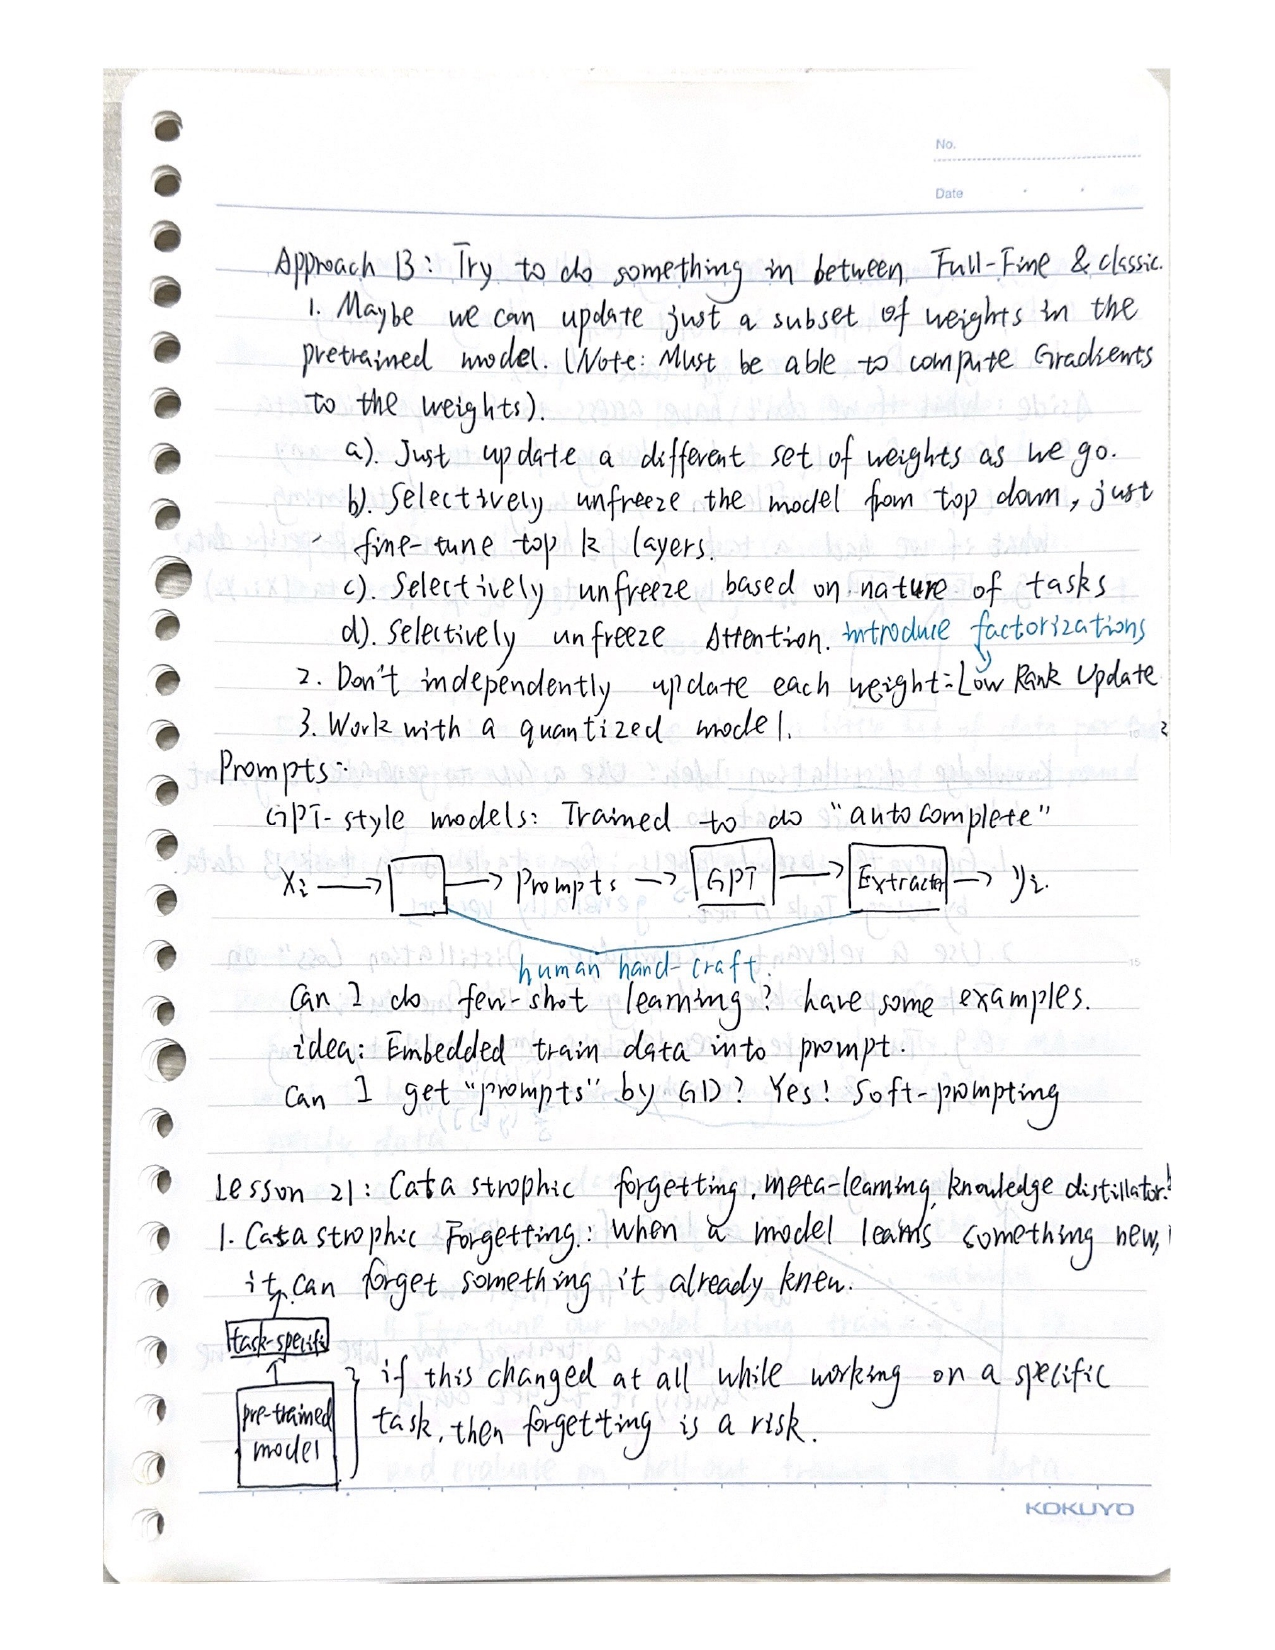 No.
Date
Approach B: Try to do something in between Full-Fine & classic.
1. Maybe we can update just a subset of weights in the
pretrained model. (Note: Must be able to compute Gradients
to the weights).
a). Just update a different set of weights as we go.
b). Selectively unfreeze the model from top down, just
fine-tune top k layers.
c). Selectively unfreeze based on nature of tasks
d). Selectively unfreeze Attention. introduce factorizations
2. Don't independently update each weight: Low Rank Update
3. Work with a quantized model.
Prompts:
GPT-style models: Trained to do "autocomplete"
Xi → Prompts → GPT → Extractor → yi.
human hand-craft.
Can I do few-shot learning? have some examples.
idea: Embedded train data into prompt.
Can I get "prompts" by GD? Yes! Soft-prompting
Lesson 21: Catastrophic forgetting, meta-learning, knowledge distillator.
1. Catastrophic Forgetting: when a model learns something new,
it can forget something it already knew.
task-specific
if this changed at all while working on a specific
pre-trained
task, then forgetting is a risk.
model
KOKUYO